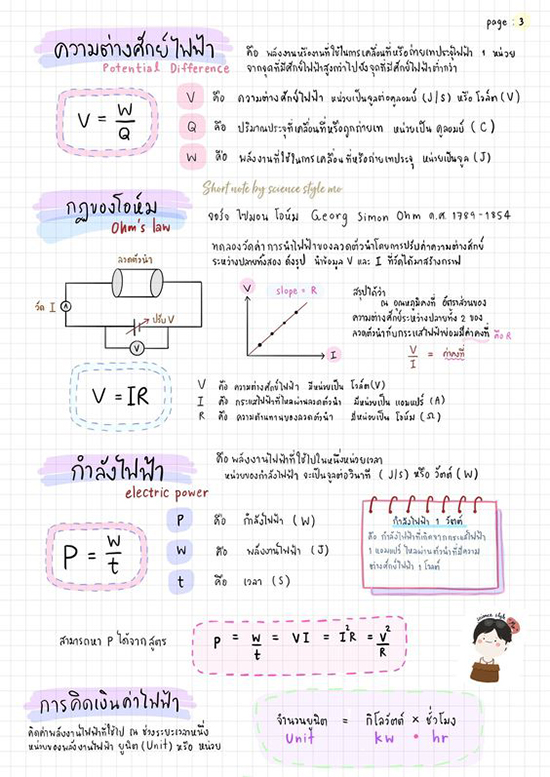 page : 3
ความต่างศักย์ไฟฟ้า
Potential Difference
คือ พลังงานหรืองานที่ใช้ในการเคลื่อนที่หรือถ่ายเทประจุไฟฟ้า 1 หน่วย
จากจุดที่มีศักย์ไฟฟ้าสูงกว่าไปยังจุดที่มีศักย์ไฟฟ้าต่ำกว่า
V = W/Q
V คือ ความต่างศักย์ไฟฟ้า หน่วยเป็นจูลต่อคูลอมบ์ (J/s) หรือ โวล์ต (V)
Q คือ ปริมาณประจุที่เคลื่อนที่หรือถูกถ่ายเท หน่วยเป็น คูลอมบ์ (C)
W คือ พลังงานที่ใช้ในการเคลื่อนที่หรือถ่ายเทประจุ หน่วยเป็นจูล (J)
Short note by science style mo
กฎของโอห์ม
Ohm's law
จอร์จ ไซมอน โอห์ม Georg Simon Ohm ค.ศ. 1789 - 1854
ทดลองวัดค่า การนำไฟฟ้าของลวดตัวนำโดยการปรับค่าความต่างศักย์
ระหว่างปลายทั้งสอง ดังรูป นำข้อมูล V และ I ที่วัดได้มาสร้างกราฟ
ลวดตัวนำ
วัด I
A
ปรับ V
V
V
slope = R
I
สรุปได้ว่า
ณ อุณหภูมิคงที่ อัตราส่วนของ
ความต่างศักย์ระหว่างปลายทั้ง 2 ของ
ลวดตัวนำกับกระแสไฟฟ้าย่อมมีค่าคงที่ คือ R
V/I = ค่าคงที่
V = IR
V คือ ความต่างศักย์ไฟฟ้า มีหน่วยเป็น โวล์ต(V)
I คือ กระแสไฟฟ้าที่ไหลผ่านลวดตัวนำ มีหน่วยเป็น แอมแปร์ (A)
R คือ ความต้านทานของลวดตัวนำ มีหน่วยเป็น โอห์ม (Ω)
กำลังไฟฟ้า
electric power
คือ พลังงานไฟฟ้าที่ใช้ไปในหนึ่งหน่วยเวลา
หน่วยของกำลังไฟฟ้า จะเป็นจูลต่อวินาที (J/s) หรือ วัตต์ (W)
P = W/t
P คือ กำลังไฟฟ้า (W)
W คือ พลังงานไฟฟ้า (J)
t คือ เวลา (S)
กำลังไฟฟ้า 1 วัตต์
คือ กำลังไฟฟ้าที่เกิดจากกระแสไฟฟ้า
1 แอมแปร์ ไหลผ่านตัวนำที่มีความ
ต่างศักย์ไฟฟ้า 1 โวลต์
สามารถหา P ได้จากสูตร
P = W/t = VI = I²R = V²/R
science club
การคิดเงินค่าไฟฟ้า
คิดค่าพลังงานไฟฟ้าที่ใช้ไป ณ ช่วงระยะเวลาหนึ่ง
หน่วยของพลังงานไฟฟ้า ยูนิต (Unit) หรือ หน่วย
จำนวนยูนิต = กิโลวัตต์ × ชั่วโมง
Unit kw • hr